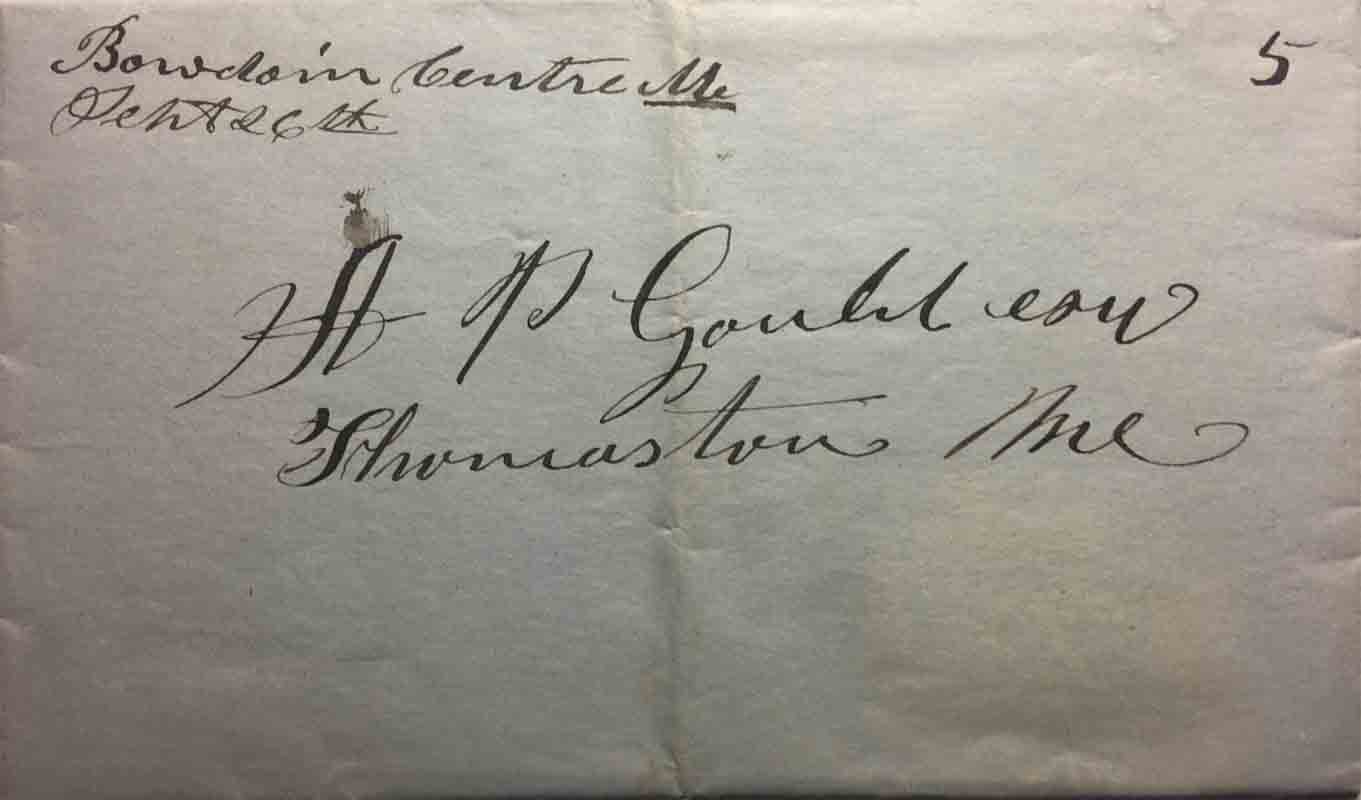 Bowdoin Centre Me
Sept 26th
5
A P Gould esq
Thomaston Me